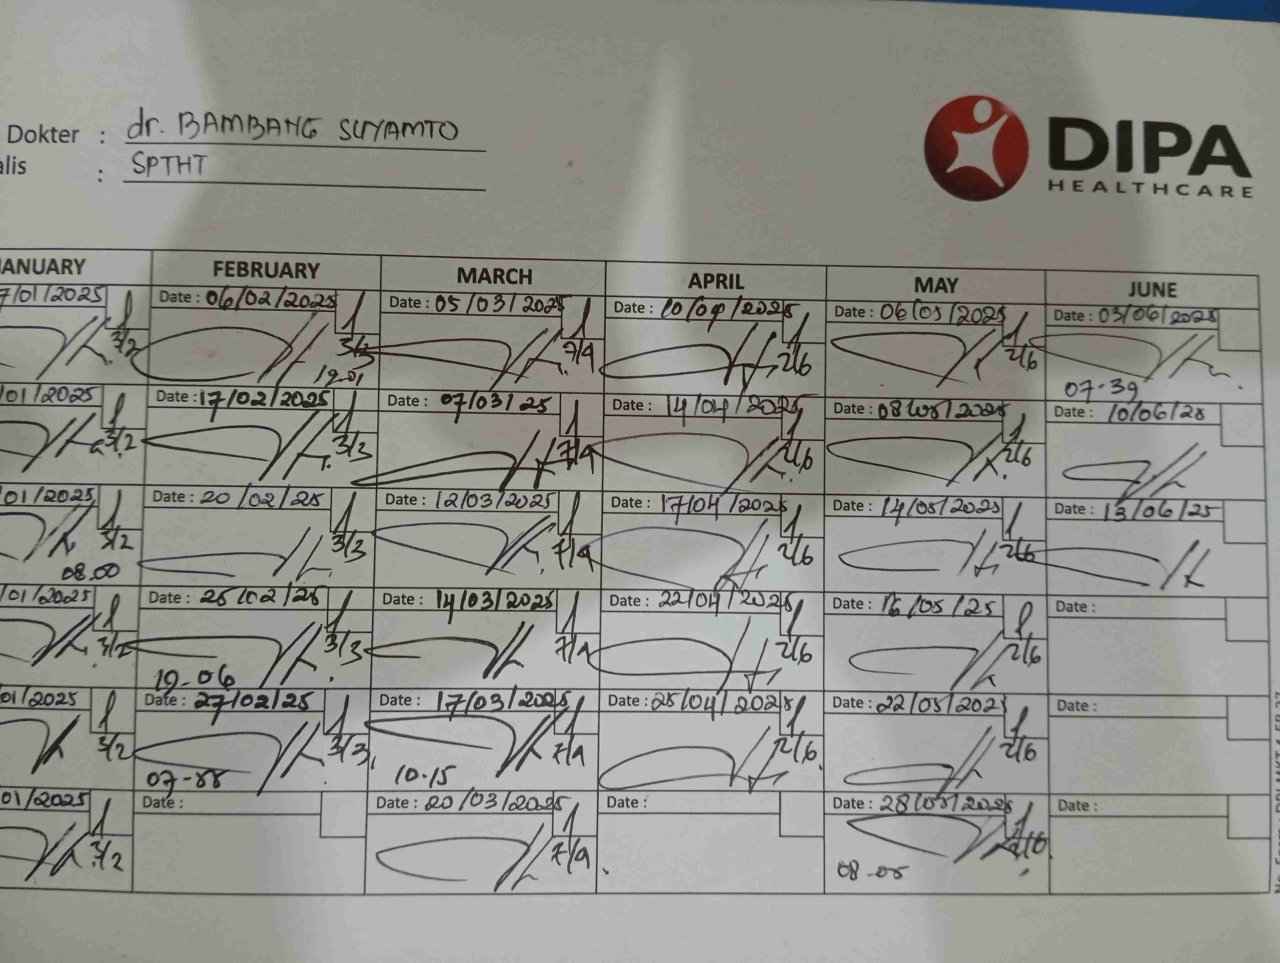 Dokter : dr. BAMBANG SUYAMTO
alis : SPTHT
DIPA
HEALTHCARE
ANUARY FEBRUARY MARCH APRIL MAY JUNE
7/01/2025 Date : 06/02/2025 Date : 05/03/2025 Date : 10/04/2025 Date : 06/05/2025 Date : 03/06/2025
3/2 3/3 7/4 2/6 2/6
19.01 07-39
/01/2025 Date : 17/02/2025 Date : 07/03/25 Date : 14/04/2025 Date : 08/05/2025 Date : 10/06/25
3/2 3/3 7/4 2/6 2/6
/01/2025 Date : 20/02/25 Date : 12/03/2025 Date : 17/04/2025 Date : 14/05/2025 Date : 13/06/25
3/2 3/3 7/4 2/6 2/6
08.00
/01/2025 Date : 25/02/25 Date : 14/03/2025 Date : 22/04/2025 Date : 16/05/25 Date :
3/2 3/3 7/4 2/6 2/6
19-06
01/2025 Date : 27/02/25 Date : 17/03/2025 Date : 25/04/2025 Date : 22/05/2025 Date :
3/2 3/3 7/4 2/6 2/6
10.15
01/2025 Date : Date : 20/03/2025 Date : Date : 28/05/2025 Date :
3/2 7/4 2/6
08.05